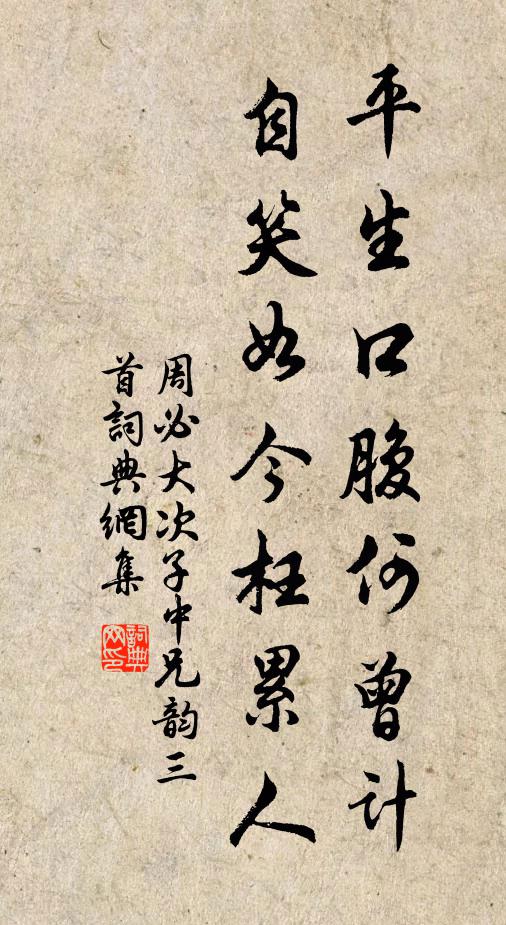 平生口腹何曾計
自笑如今枉累人
周必大次子中兄韵三
首詞典網集
詞典
网印